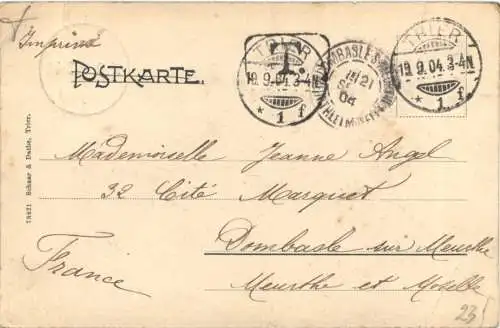 Imprimé
POSTKARTE.
TRIER
19.9.04.3-4N
* 1 f
T.
21
04
TRIER
19.9.04.3-4N
* 1 f
Mademoiselle Jeanne Angel
32 Cité Marquet
Dombasle sur Meurthe
Meurthe et Moselle
France
Schaar & Dathe, Trier.
23